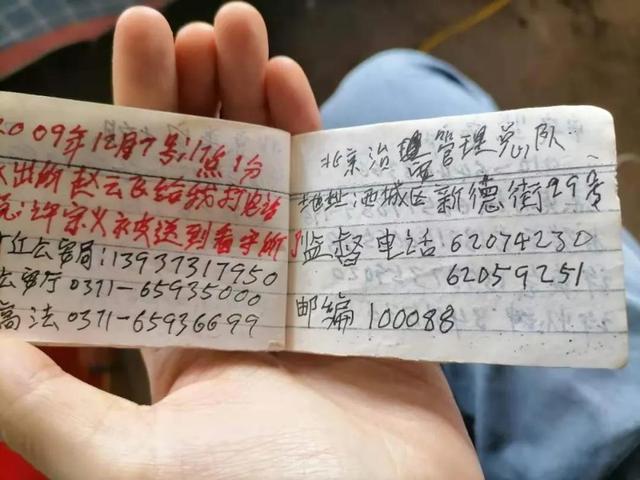 2009年12月7号:17点1分
出所 赵云飞给我打电话
说:许宗义被送到看守所了
公安局:13937317950
公安厅 0371-65935000
高法 0371-65936699
北京治安管理总队
地址:西城区新德街29号
监督电话:62074230
62059251
邮编 100088